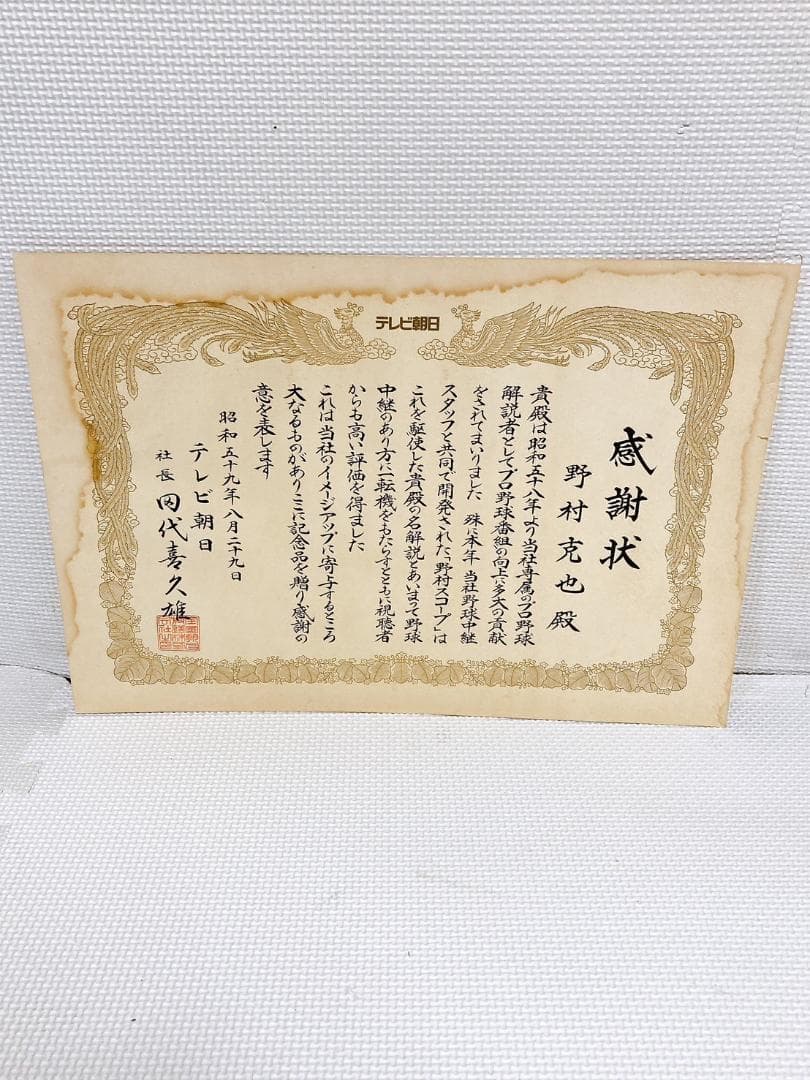 テレビ朝日
感謝状
野村克也殿
貴殿は昭和五十八年より当社専属のプロ野球
解説者としてプロ野球番組の向上に多大の貢献
をされてまいりました 殊に本年 当社野球中継
スタッフと共同で開発された「野村スコープ」は
これを駆使した貴殿の名解説とあいまって野球
中継のあり方に一転機をもたらすとともに視聴者
からも高い評価を得ました
これは当社のイメージアップに寄与するところ
大なるものがありここに記念品を贈り感謝の
意を表します
昭和五十九年八月二十九日
テレビ朝日
社長 田代喜久雄